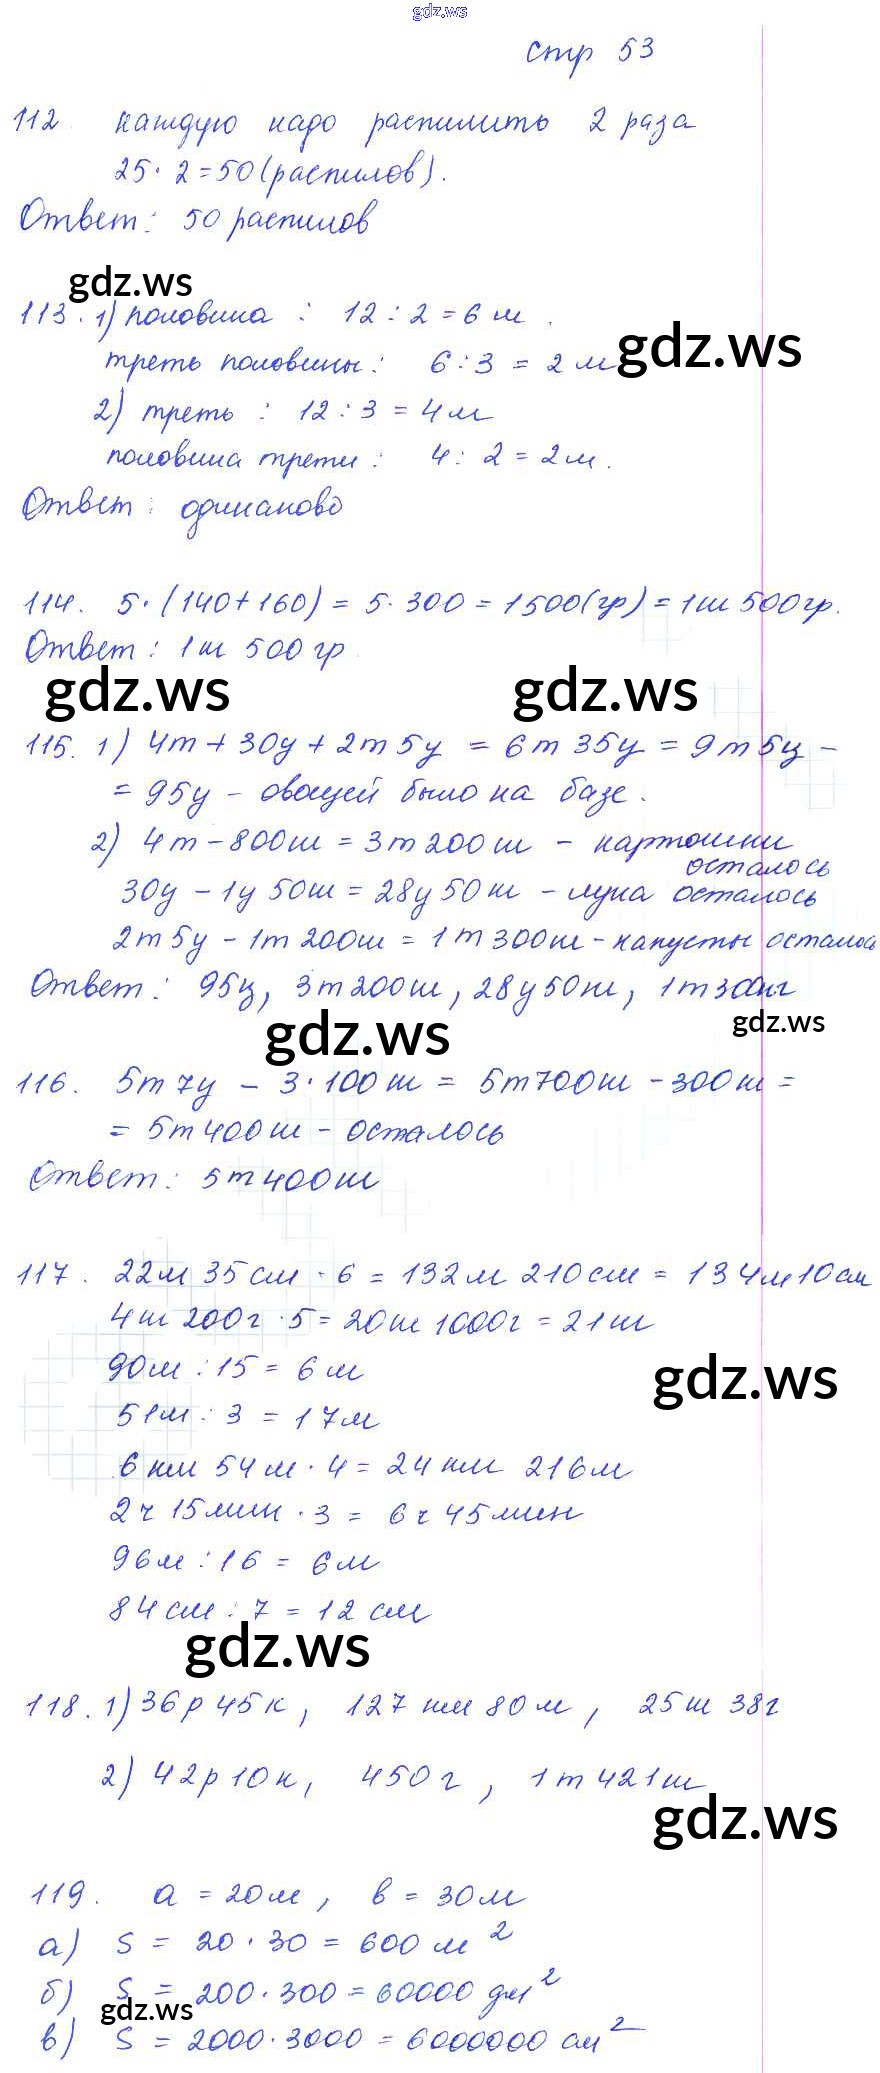 gdz.ws
стр 53
112. каждую надо распилить 2 раза
25 · 2 = 50 (распилов).
Ответ: 50 распилов
gdz.ws
113. 1) половина : 12 : 2 = 6 м.
gdz.ws
треть половины: 6 : 3 = 2 м
2) треть : 12 : 3 = 4 м
половина трети : 4 : 2 = 2 м.
Ответ : одинаково
114. 5 · (140 + 160) = 5 · 300 = 1500 (гр) = 1 кг 500 гр.
Ответ : 1 кг 500 гр
gdz.ws gdz.ws
115. 1) 4т + 30ц + 2т 5ц = 6т 35ц = 9т 5ц =
= 95ц - овощей было на базе.
2) 4т - 800кг = 3т 200кг - картошки
осталось
30ц - 1ц 50кг = 28ц 50кг - лука осталось
2т 5ц - 1т 200кг = 1т 300кг - капусты осталось
Ответ : 95ц, 3т 200кг, 28ц 50кг, 1т 300кг
gdz.ws gdz.ws
116. 5т 7ц - 3 · 100кг = 5т 700кг - 300кг =
= 5т 400кг - осталось
Ответ : 5т 400кг
117. 22м 35см · 6 = 132м 210см = 134м 10см
4кг 200г · 5 = 20кг 1000г = 21кг
90м : 15 = 6м
gdz.ws
51м : 3 = 17м
6км 54м · 4 = 24км 216м
2ч 15мин · 3 = 6ч 45мин
96м : 16 = 6м
84см : 7 = 12см
gdz.ws
118. 1) 36р 45к, 127км 80м, 25кг 38г
2) 42р 10к, 450г, 1т 421кг
gdz.ws
119. a = 20м, b = 30м
а) S = 20 · 30 = 600 м²
б) S = 200 · 300 = 60000 дм²
gdz.ws
в) S = 2000 · 3000 = 6000000 см²